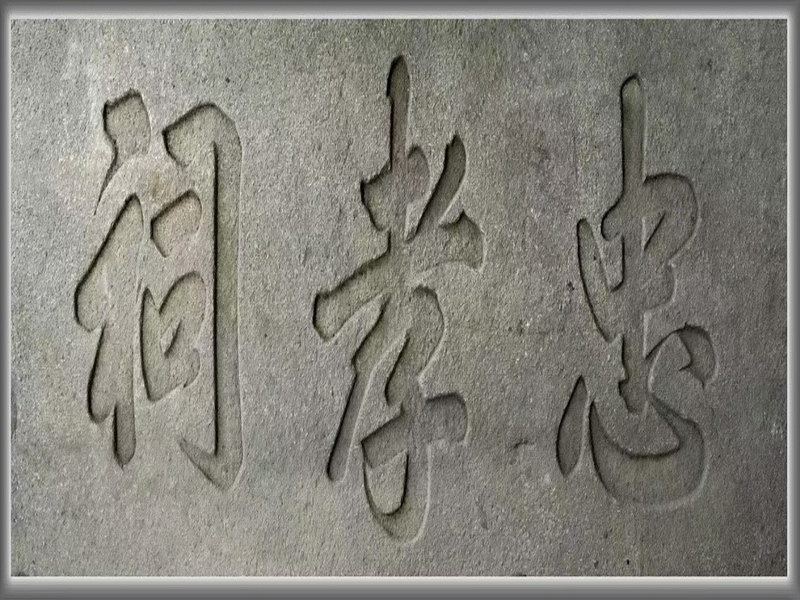 忠孝祠